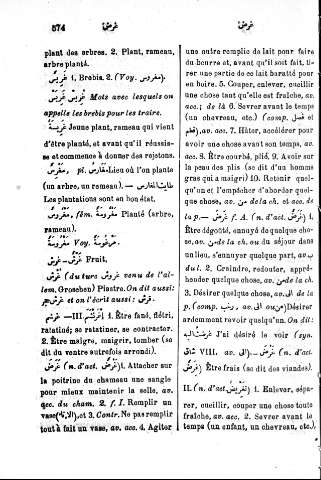 574
غرض
غرض
plant des arbres. 2. Plant, rameau,
arbre planté.
غريس 1. Brebis. 2. (Voy. مغروس).
غريس غريس Mots avec lesquels on
appelle les brebis pour les traire.
غريسة Jeune plant, rameau qui vient
d'être planté, et avant qu'il réussis-
se et commence à donner des rejetons.
مغرس, pl. مغارس Lieu où l'on plante
(un arbre, un rameau). طابت المغارس
Les plantations sont en bon état.
مغروس, fém. مغروسة Planté (arbre,
rameau).
مغروسة Voy. غريسة
غرش — غرش Fruit.
غرش (du turc غروش venu de l'al-
lem, Groschen) Piastre. On dit aussi:
et on l'écrit aussi: قرش.
III — 1. Être fané, flétri,
ratatiné; se ratatiner, se contracter.
2. Être maigre, maigrir, tomber (se
dit du ventre autrefois arrondi).
غرض (n. d'act. غرض) 1. Attacher sur
la poitrine du chameau une sangle
pour mieux maintenir la selle, av.
acc. du cham. 2. f. I. Remplir un
vase (الإناء), et 3. Contr. Ne pas remplir
tout à fait un vase, av. acc. 4. Agiter
une outre remplie de lait pour faire
du beurre et, avant qu'il soit fait, ti-
rer une partie de ce lait baratté pour
en boire. 5. Couper, enlever, cueillir
une chose tant qu'elle est fraîche, av.
acc.; de là 6. Sevrer avant le temps
(un chevreau, etc.) (comp. فصل et
قطم), av. acc. 7. Hâter, accélérer pour
avoir une chose avant son temps, av.
acc. 8. Être courbé, plié. 9. Avoir sur
la peau des plis (se dit d'un homme
gras qui a maigri) 10. Retenir quel-
qu'un et l'empêcher d'aborder quel-
que chose, av. من de la ch. et acc. de
la p. — غرض f. A. (n. d'act. غرض) 1.
Être dégoûté, ennuyé de quelque cho-
se, av. من de la ch. ou du séjour dans
un lieu, s'ennuyer quelque part, av.
du l. 2. Craindre, redouter, appré-
hender quelque chose, av. من de la ch.
3. Désirer quelque chose, av. الى de la
p. (n. d'act. غرض, av. الى ou) Désirer
ardemment revoir quelqu'un. On dit:
غرضت اليه J'ai désiré le voir (syn.
شاق VIII. av. الى). — غرض (n. d'act.
غرض) Être frais (se dit des viandes).
II. (n. d'act. تغريض) 1. Enlever, sépa-
rer, cueillir, couper une chose toute
fraîche, av. acc. 2. Sevrer avant le
temps (un enfant, un chevreau, etc.),